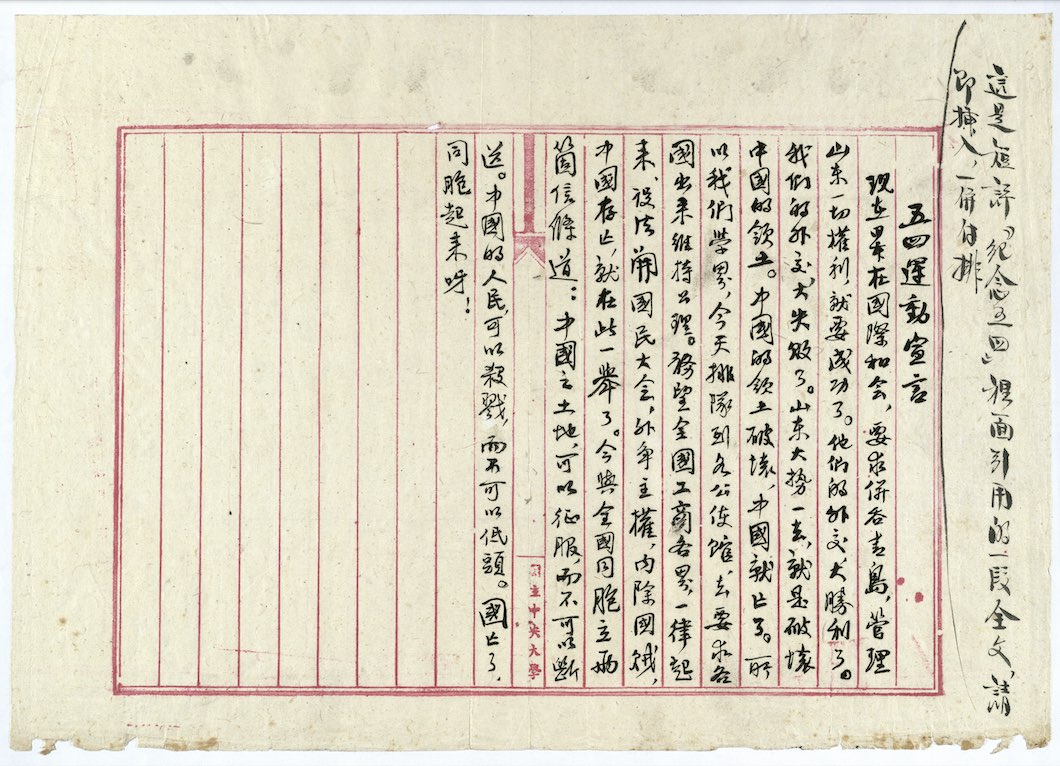 這是短評「紀念五四」裡面引用的一段全文,請
即插入,一併付排
五四運動宣言
現在日本在國際和会,要求併吞青島,管理
山东一切權利,就要成功了。他们的外交,大勝利了。
我们的外交,大失敗了。山东大势一去,就是破壞
中國的领土。中國的领土破壞,中國就亡了。所
以我們學界,今天排隊到各公使館,去要求各
國出来維持公理。務望全國工商各界,一律起
来,設法開國民大会,外争主權,内除國賊,
中國存亡,就在此一舉了。今與全國同胞立兩
箇信條道:中國之土地,可以征服,而不可以斷
國立中央大學
送。中國的人民,可以殺戮,而不可以低頭。國亡了,
同胞起来呀!